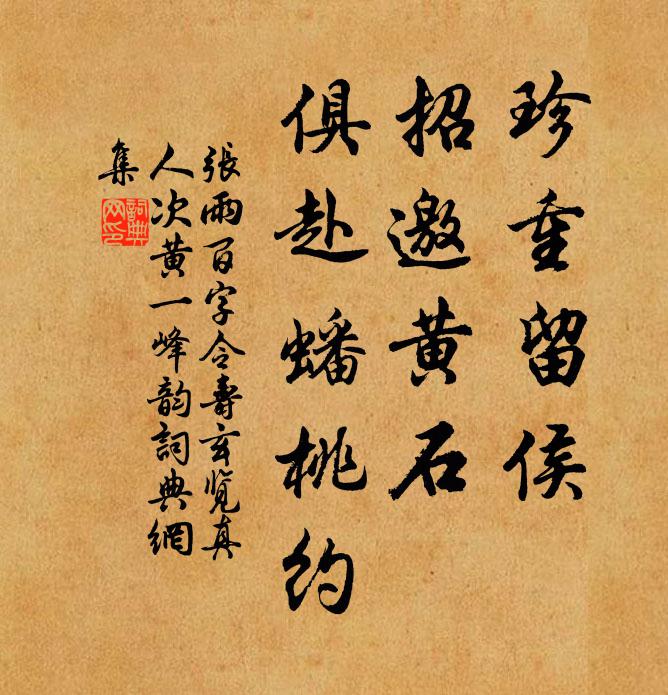 珍重留侯
招邀黄石
俱赴蟠桃约
張雨百字令壽玄览真
人次黄一峰韵詞典網
集
詞典網印